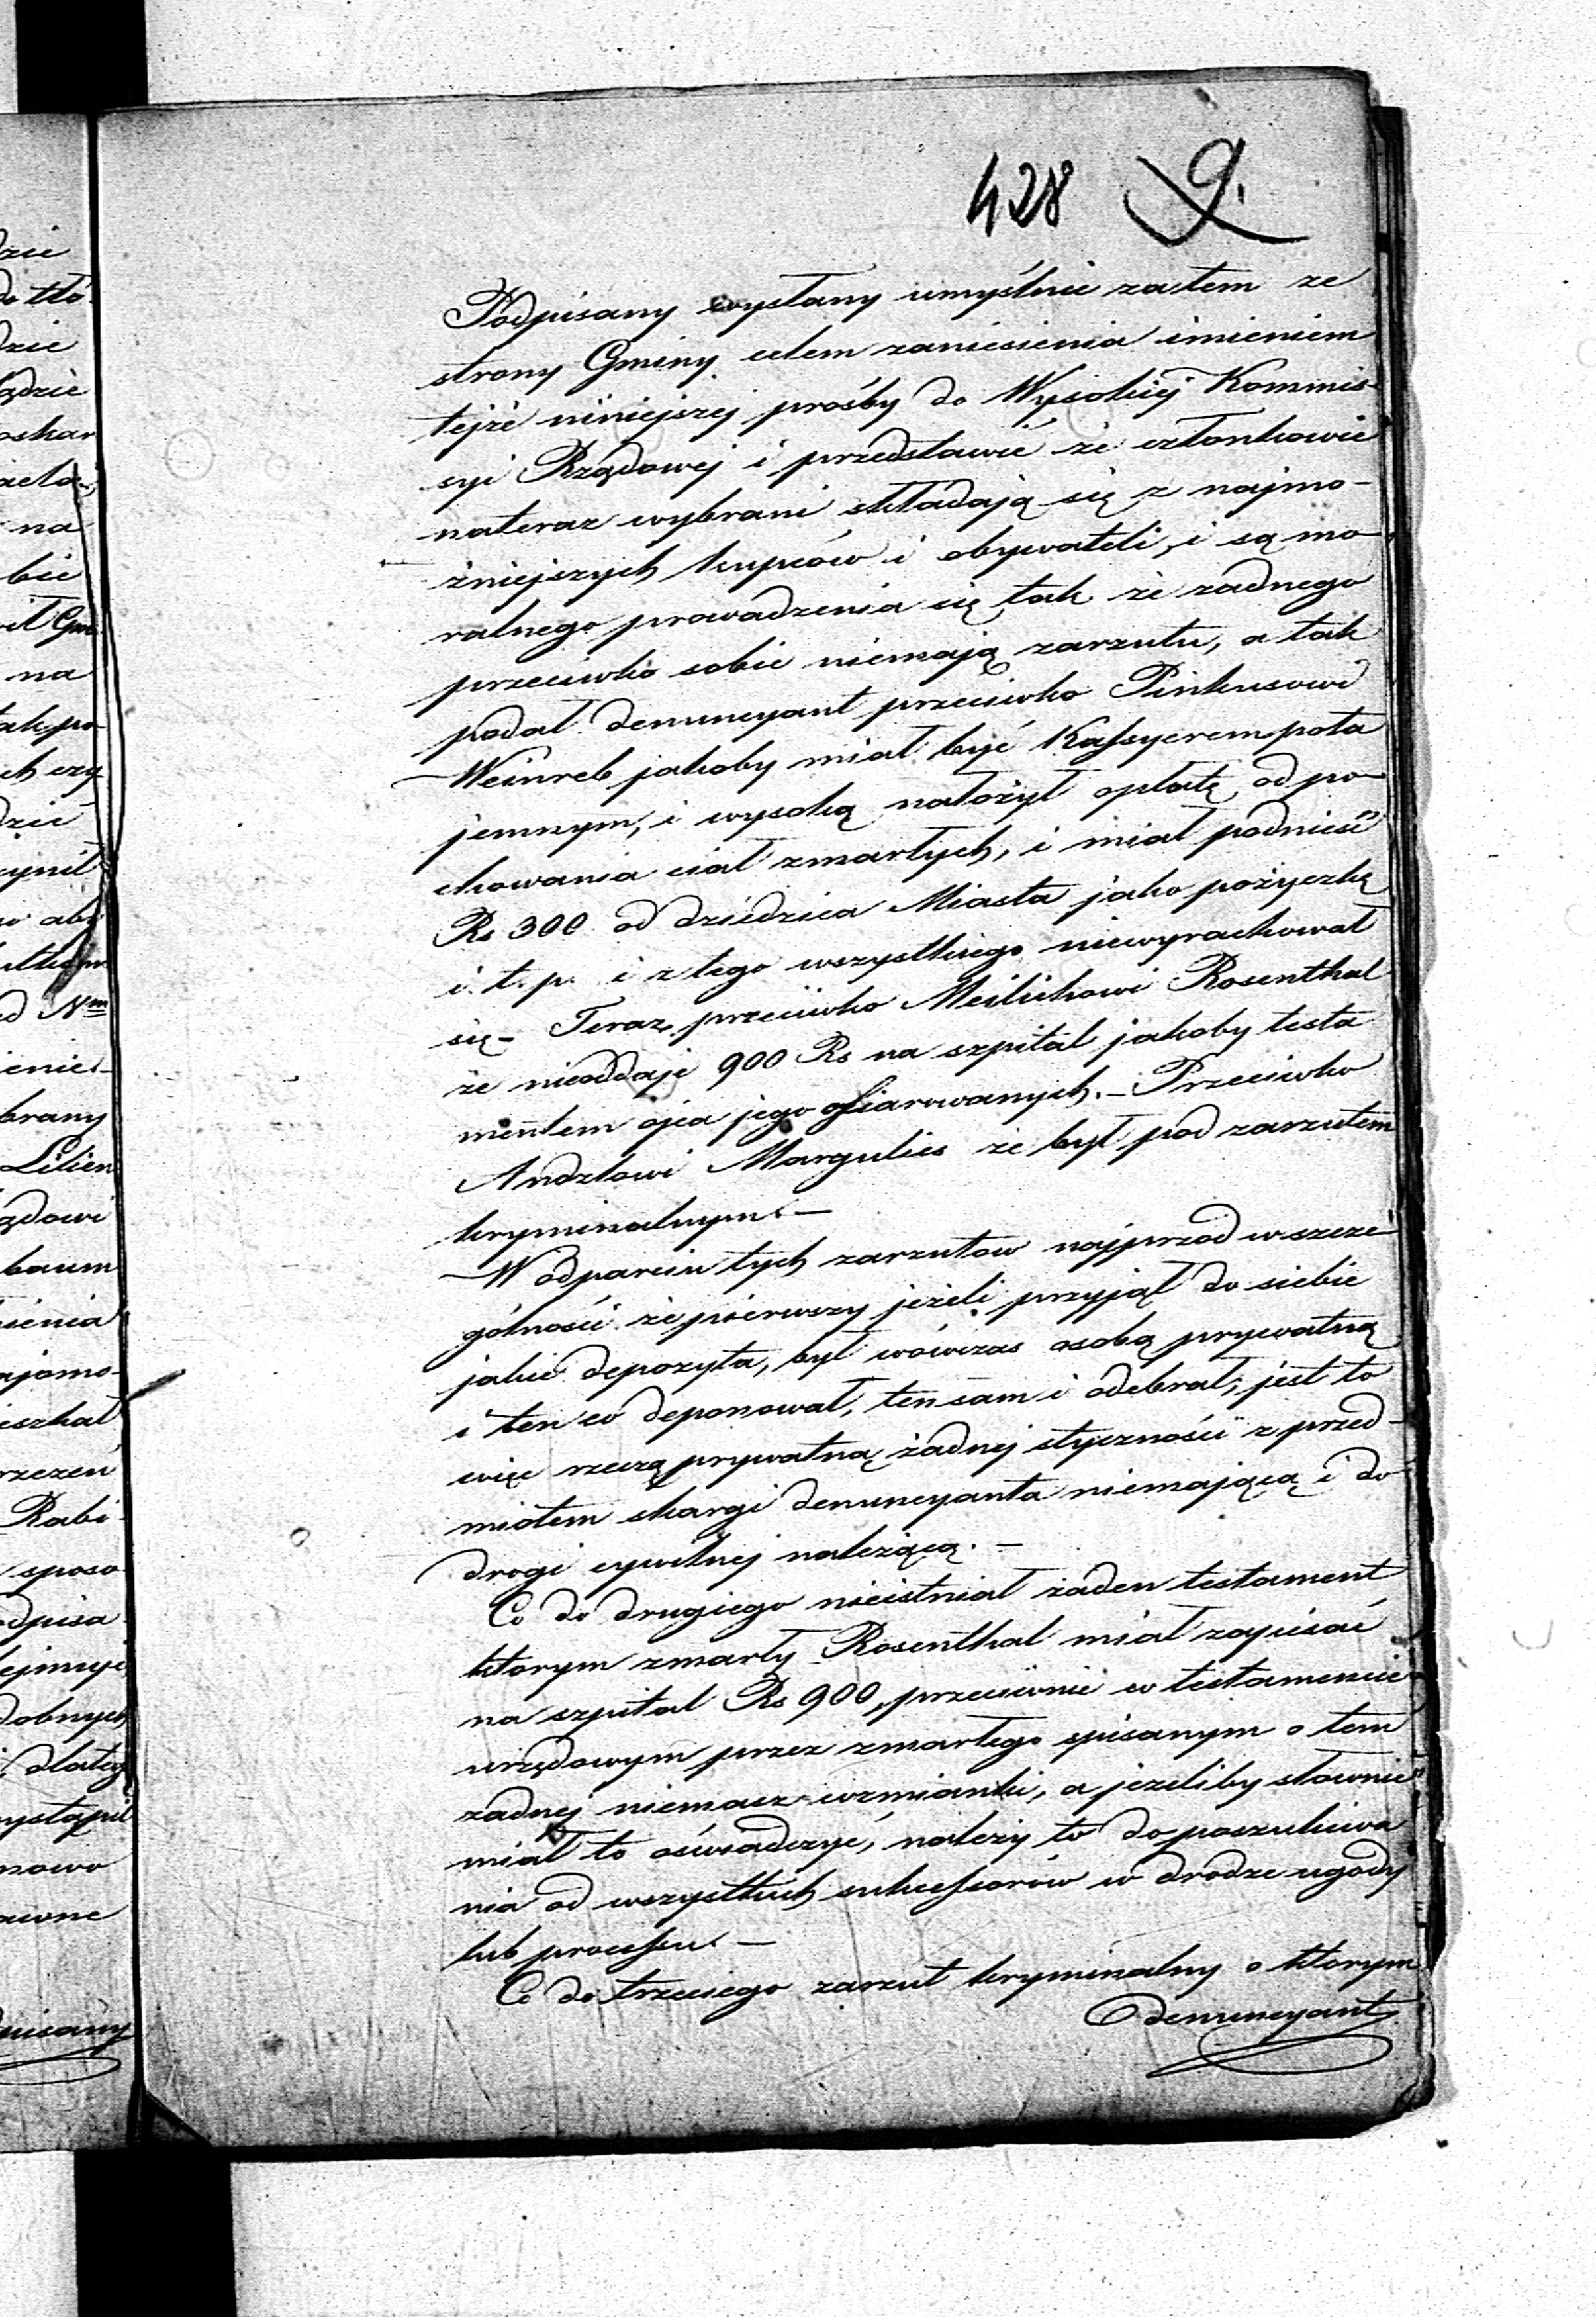 428 9.
Podpisany wysłany umyślnie zatem ze
strony Gminy celem zaniesienia imieniem
tejże niniejszej prośby do Wysokiej Kommis-
syi Rządowej i przedstawić że członkowie
nateraz wybrani składają się z najmo-
żniejszych kupców i obywateli, i są mo
ralnego prowadzenia się tak że zadnego
przeciwko sobie niemają zarzutu, a tak
podał denuncyant przeciwko Pinkusowi
Weinreb jakoby miał być Kassyerem pota
jemnym, i wysoką nałożył opłatę od po-
chowania ciał zmarłych, i miał podnieść
Rs 300 od dziedzica Miasta jako pożyczkę
i. t. p. i z tego wszystkiego niewyrachował
się – Teraz przeciwko Meilichowi Rosenthal
że nieoddaje 900 Rs na szpital jakoby testa
mentem ojca jego ofiarowanych. – Przeciwko
Andzlowi Margulies że był pod zarzutem
kryminalnym. –
W odparciu tych zarzutow najprzod w szcze
gólności że pierwszy jeżeli przyjął do siebie
jakie depozyta, był wówczas osobą prywatną
i ten co deponował, ten sam i odebrał, jest to
więc rzeczą prywatną, żadnej styczności z przed-
miotem skargi denuncyanta niemającą i do
drogi cywilnej należącą. –
Co do drugiego nieistniał żaden testament
ktorym zmarły Rosenthal miał zapisać
na szpital Rs 900, przeciwnie w testamencie
urzędowym przez zmarłego spisanym o tem
zadnej niemasz wzmianki, a jeżeliby słownie
miał to oświadczyć, należy to do poszukiwa
nia od wszystkich sukcessorów w drodze ugody
lub processu. –
Co do trzeciego zarzut kryminalny o ktorym
denuncyant